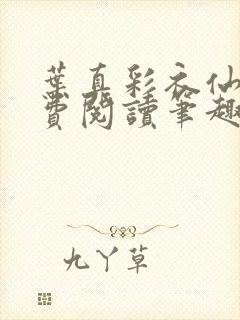 葉真彩衣仙
費閱讀筆趣
九丫草